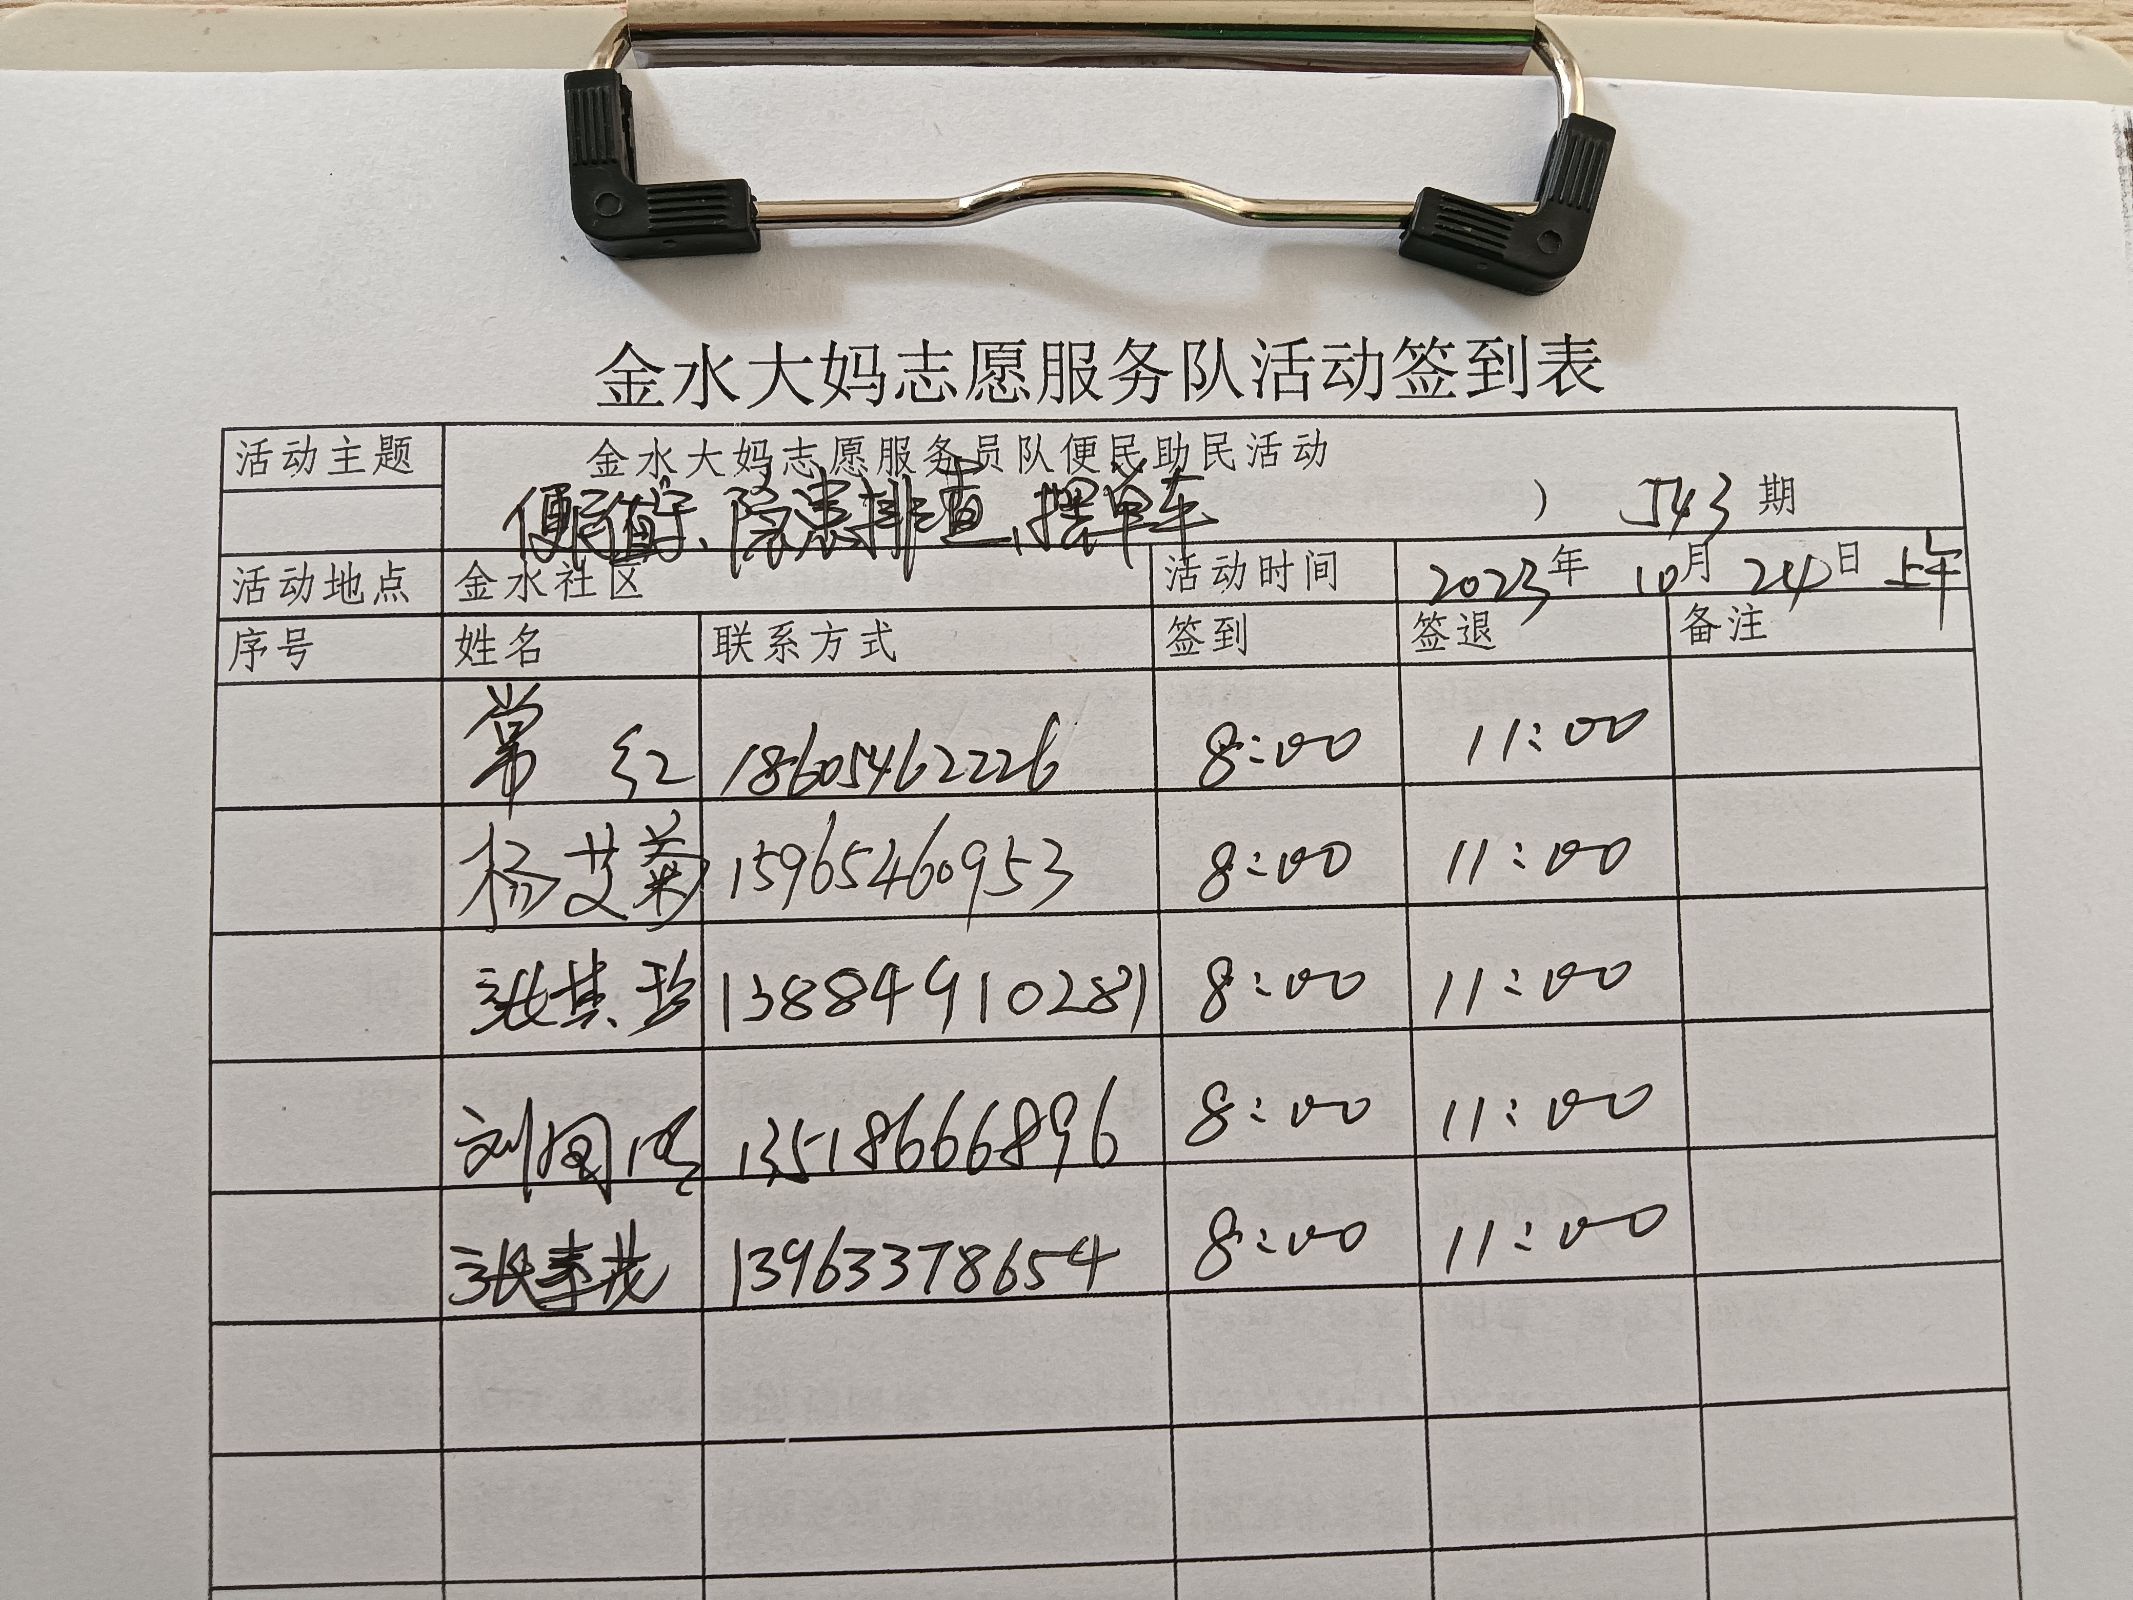 金水大妈志愿服务队活动签到表
活动主题 金水大妈志愿服务员队便民助民活动
便民值守、隐患排查、摆单车 ） 543期
活动地点 金水社区 活动时间 2023年 10月 24日 上午
序号 姓名 联系方式 签到 签退 备注
常红 18605462226 8:00 11:00
杨艾菊 15965460953 8:00 11:00
张其珍 13884910281 8:00 11:00
刘 13518666896 8:00 11:00
张 13963378654 8:00 11:00